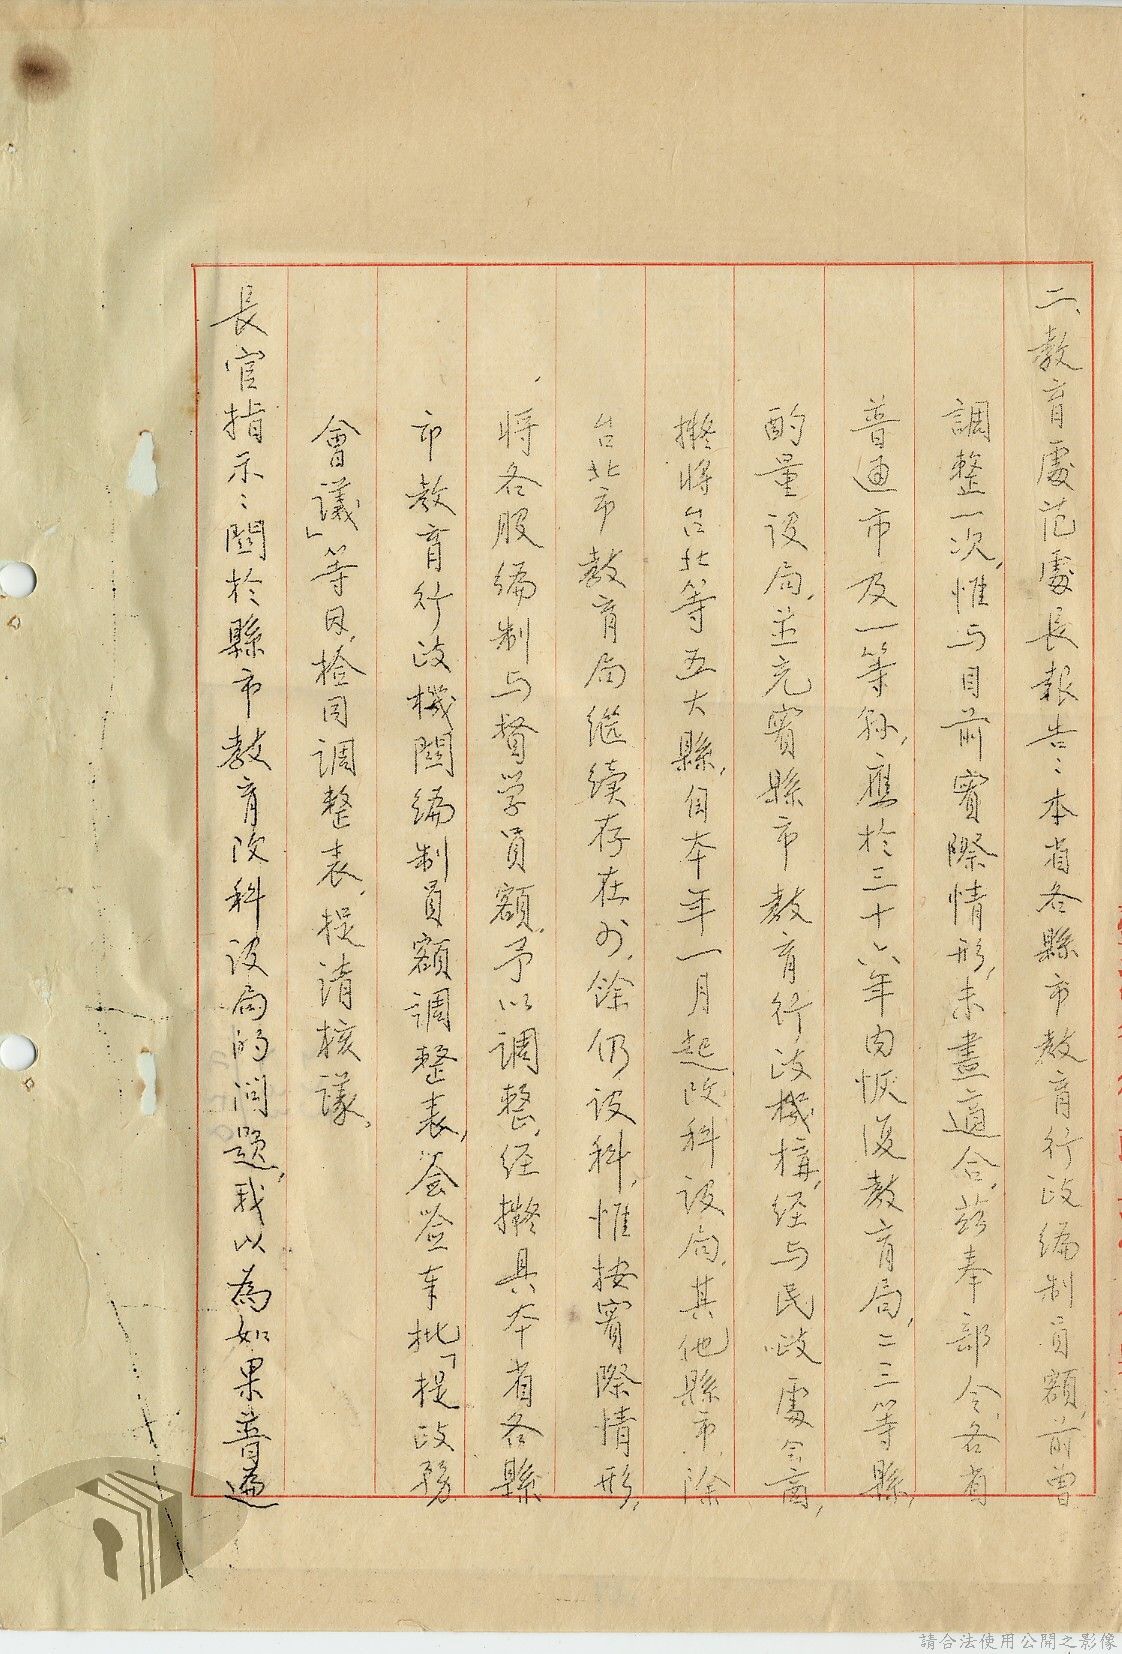 二、教育處范處長報告：本省各縣市教育行政編制員額，前曾
調整一次，惟与目前實際情形，未盡適合，茲奉部令，各省
普通市及一等縣，應於三十六年內恢復教育局，二三等縣，
酌量設局，並充實縣市教育行政機構，经与民政處会商，
擬將台北等五大縣，自本年一月起改科設局，其他縣市，除
台北市教育局继續存在外，餘仍設科，惟按實際情形，
將各股編制与督学員額，予以調整，经擬具本省各縣
市教育行政機關編制員額調整表，簽奉批「提政務
會議」等因，檢同調整表，提請核議。
長官指示：關於縣市教育改科設局的问题，我以為如果普遍
請合法使用公開之影像